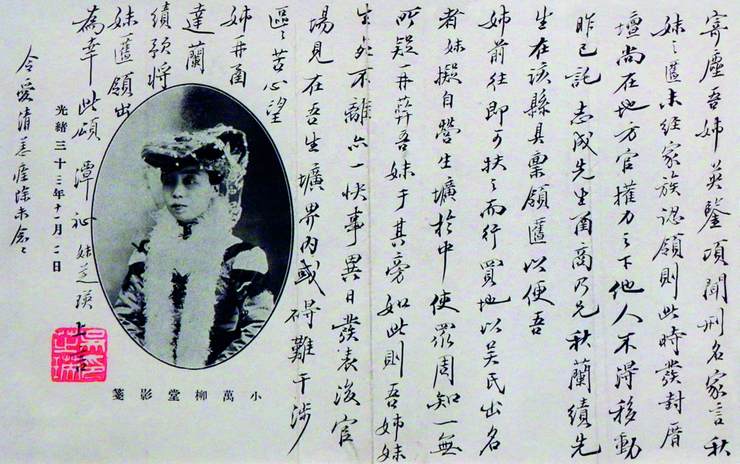 寄塵吾姊英鑒頃聞刑名家言秋
妹之匶未經家族認領則此時發封厝
壇尚在地方官權力之下他人不得移動
昨已託志成先生函商乃兄秋蘭績先
生在該縣具稟領匶以便吾
姊前往即可扶之而行買地以吳氏出名
者妹擬自營生壙於中使眾周知一無
所疑并葬吾妹于其旁如此則吾姊妹
生死不離亦一快事異日發表後官
場見在吾生壙界內或得難干涉
區〻苦心望
姊并函
達蘭
績預將
妹匶領出
為幸此頌 潭祉 妹芝瑛上言
光緒三十三年十一月二日
令愛清恙痊除未念〻
小萬柳堂影箋